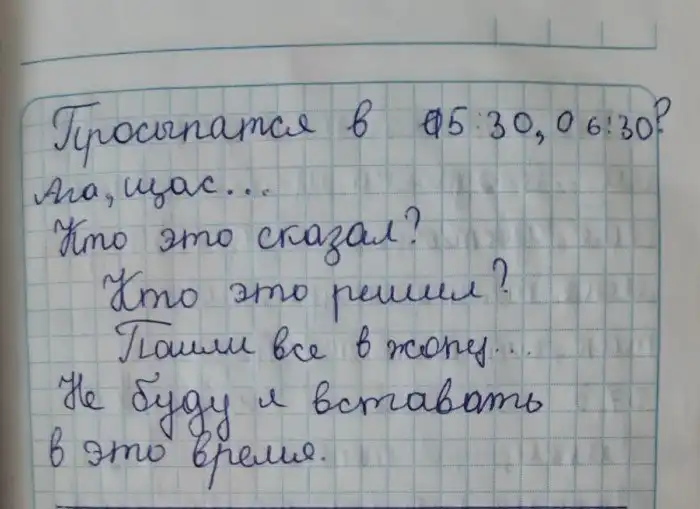 Просыпатся в 05:30, 06:30?
Ага, щас...
Кто это сказал?
Кто это решил?
Пошли все в жопу...
Не буду я вставать
в это время.